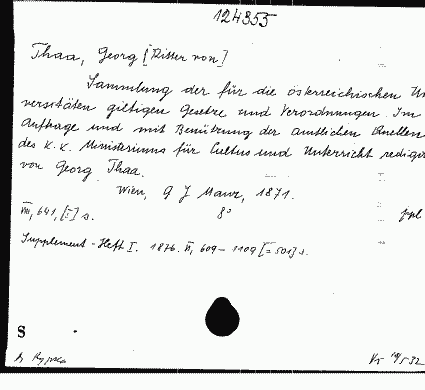 124355
Thaa, Georg [Ritter von]
Sammlung der für die österreichischen Un
versitäten giltigen Gesetze und Verordnungen. Im
Auftrage und mit Benützung der amtlichen Quellen
des K. K. Ministeriums für Cultus und Unterricht redigir
von Georg Thaa.
Wien, G J Manz, 1871.
VIII, 641, [I] s. 8°
Supplement-Heft I. 1876. VI, 609-1109 [=501] s.
S